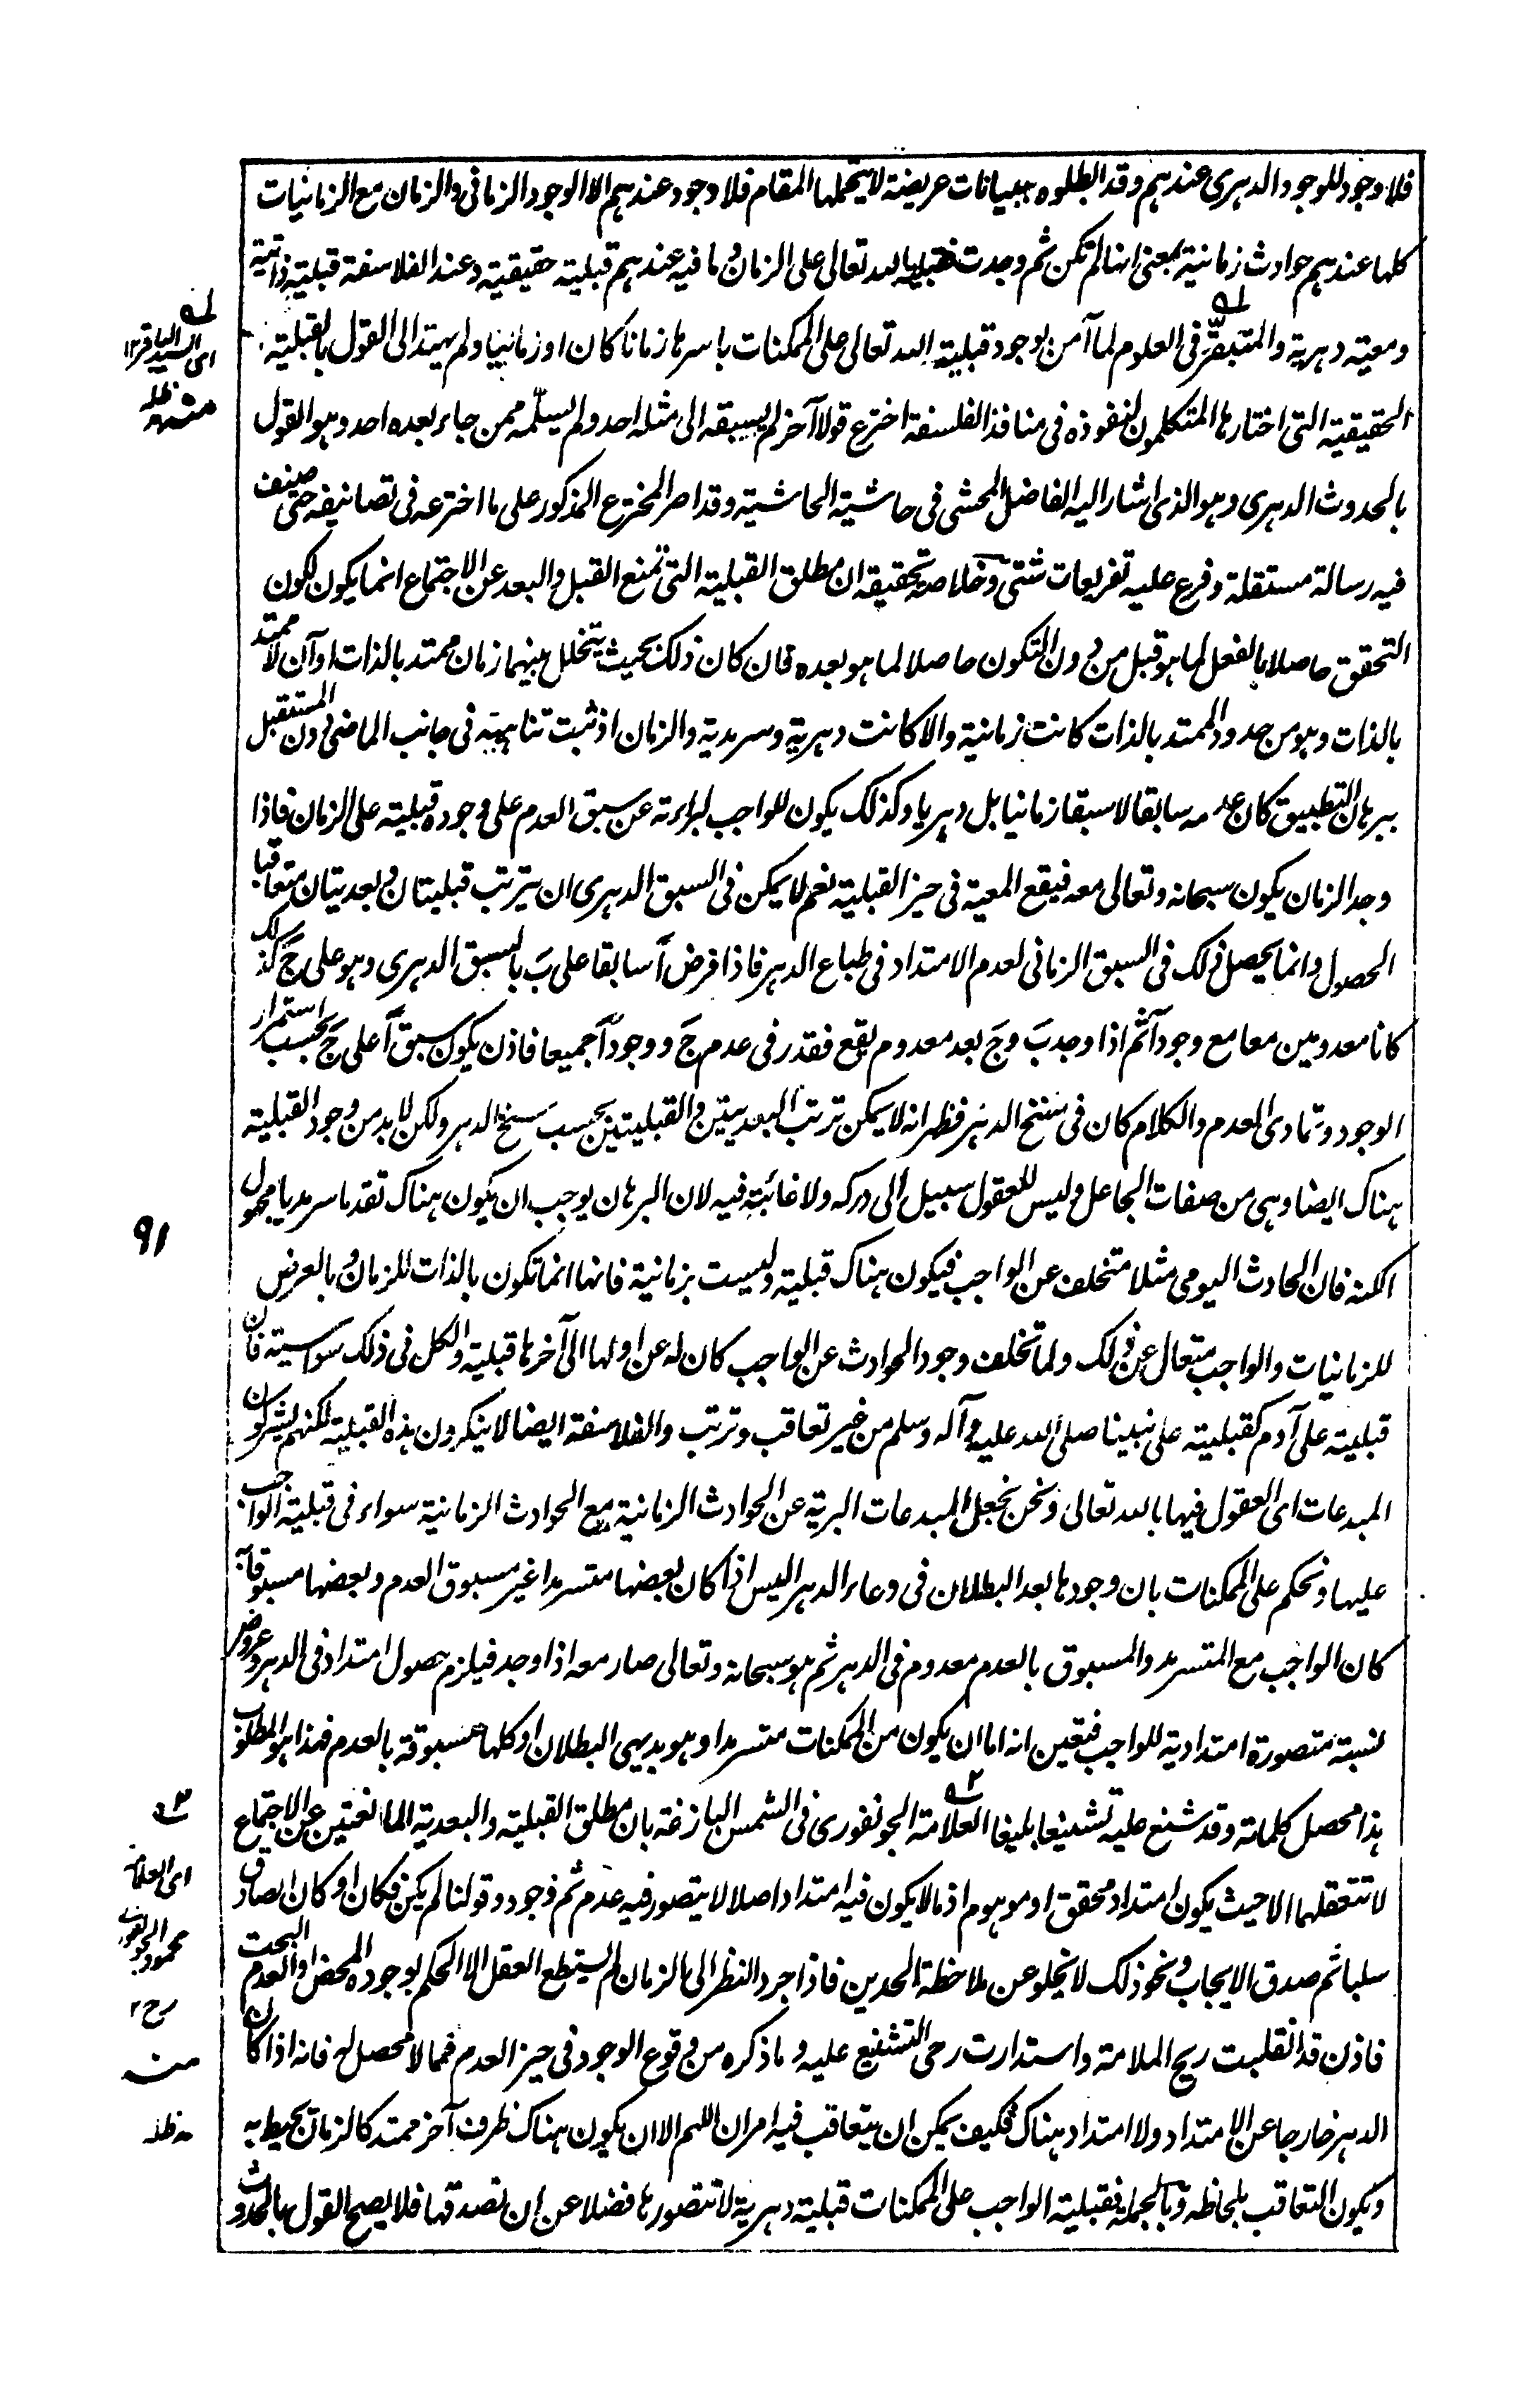 فلا وجود للوجود الدهرى عندهم وقد ابطلوه ببيانات عريضة لا يتحملها المقام فلا وجود عندهم الا الوجود الزمانى والزمان مع الزمانيات
كلها عندهم حوادث زمانية بمعنى انها لم تكن ثم وجدت فقبلية الله تعالى على الزمان وما فيه عندهم قبلية حقيقية وعند الفلاسفة قبلية ذاتية
ومعية دهرية والمتبصّر فى العلوم لما آمن بوجود قبلية الله تعالى على الممكنات باسرها زمانا كان او زمانيا ولم يهتد الى القول بالقبلية
الحقيقية التى اختارها المتكلمون لنفوذه فى منافذ الفلسفة اخترع قولا آخر لم يسبقه الى مثله احد ولم يسلّمه ممن جاء بعده احد وهو القول
بالحدوث الدهرى وهو الذى اشار اليه الفاضل المحشى فى حاشية الحاشية وقد اصر المخترع المذكور على ما اخترعه فى تصانيفه حتى صنف
فيه رسالة مستقلة وفرع عليه تفريعات شتى وخلاصة تحقيقه ان مطلق القبلية التى تمنع القبل والبعد عن الاجتماع انما يكون لكون
التحقق حاصلا بالفعل لما هو قبل من دون التكون حاصلا لما هو بعده فان كان ذلك بحيث يتخلل بينهما زمان ممتد بالذات او آن لا ممتد
بالذات وهو من حدود الممتد بالذات كانت زمانية والا كانت دهرية وسرمدية والزمان اذ ثبت تناهيه فى جانب الماضى دون المستقبل
ببرهان التطبيق كان عدمه سابقا لا سبقا زمانيا بل دهريا وكذلك يكون للواجب لبراءته عن سبق العدم على وجوده قبلية على الزمان فاذا
وجد الزمان يكون سبحانه وتعالى معه فيقع المعية فى حيز القبلية نعم لا يمكن فى السبق الدهرى ان يترتب قبليتان وبعديتان متعاقبا
الحصول وانما يحصل ذلك فى السبق الزمانى لعدم الامتداد فى طباع الدهر فاذا فرض آ سابقا على بَ بالسبق الدهرى وهو على جَ كذلك
كانا معدومين معا مع وجود آ ثم اذا وجد بَ وجَ بعد معدوم يقع فقدر فى عدم جَ ووجود آ جميعا فاذن يكون سبق آ على جَ بحسب استمرار
الوجود وتمادى العدم والكلام كان فى سنخ الدهر فظهر انه لا يمكن ترتب البعديتين والقبليتين بحسب سنخ الدهر ولكن لا بد من وجود القبلية
هناك ايضا وهى من صفات الجاعل وليس للعقول سبيل الى دركه ولا غائبة فيه لان البرهان يوجب ان يكون هناك تقدما سرمديا مجهول
الكنه فان الحادث اليومى مثلا متخلف عن الواجب فيكون هناك قبلية وليست بزمانية فانها انما تكون بالذات للزمان وبالعرض
للزمانيات والواجب متعال عن ذلك ولما تخلف وجود الحوادث عن الواجب كان له عن اولها الى آخرها قبلية والكل فى ذلك سواسية فان
قبليته على آدم كقبليته على نبينا صلى الله عليه وآله وسلم من غير تعاقب وترتب والفلاسفة ايضا لا ينكرون هذه القبلية لكنهم يشركون
المبدعات اى العقول فيها بالله تعالى ونحن نجعل المبدعات البرية عن الحوادث الزمانية مع الحوادث الزمانية سواء فى قبلية الواجب
عليها ونحكم على الممكنات بان وجودها بعد البطلان فى وعاء الدهر اليس اذا كان بعضها متسرمدا غير مسبوق العدم وبعضها مسبوقا به
كان الواجب مع المتسرمد والمسبوق بالعدم معدوم فى الدهر ثم هو سبحانه وتعالى صار معه اذا وجد فيلزم حصول امتداد فى الدهر وعروض
نسبة متصورة امتدادية للواجب فتعين انه اما ان يكون من الممكنات متسرمدا وهو بديهى البطلان او كلها مسبوقة بالعدم فهذا هو المطلوب
هذا محصل كلماته وقد شنع عليه تشنيعا بليغا العلامة الجونفورى فى الشمس البازغة بان مطلق القبلية والبعدية المانعتين عن الاجتماع
لا تتعقلهما الا حيث يكون امتداد محقق او موهوم اذ ما لا يكون فيه امتداد اصلا لا يتصور فيه عدم ثم وجود وقولنا لم يكن فكان او كان الصادق
سلبا ثم صدق الايجاب ونحو ذلك لا يخلو عن ملاحظة الحدين فاذا جرد النظر الى الزمان لم يستطع العقل الا الحكم بوجوده المحض او العدم البحت
فاذن قد انقلبت ريح الملامة واستدارت رحى التشنيع عليه وما ذكره من وقوع الوجود فى حيز العدم فمما لا محصل له فانه اذا كان
الدهر خارجا عن الامتداد ولا امتداد هناك فكيف يمكن ان يتعاقب فيه امران اللهم الا ان يكون هناك ظرف آخر ممتد كالزمان يحيط به
ويكون التعاقب بلحاظه وبالجملة فقبلية الواجب على الممكنات قبلية دهرية لا نتصورها فضلا عن ان نصدقها فلا يصح القول بالحدوث
اى السيد الباقر ١٢
منه مد ظله
٩١
اى العلامة
محمود الجونفورى
رح ١٢
منه
مد ظله